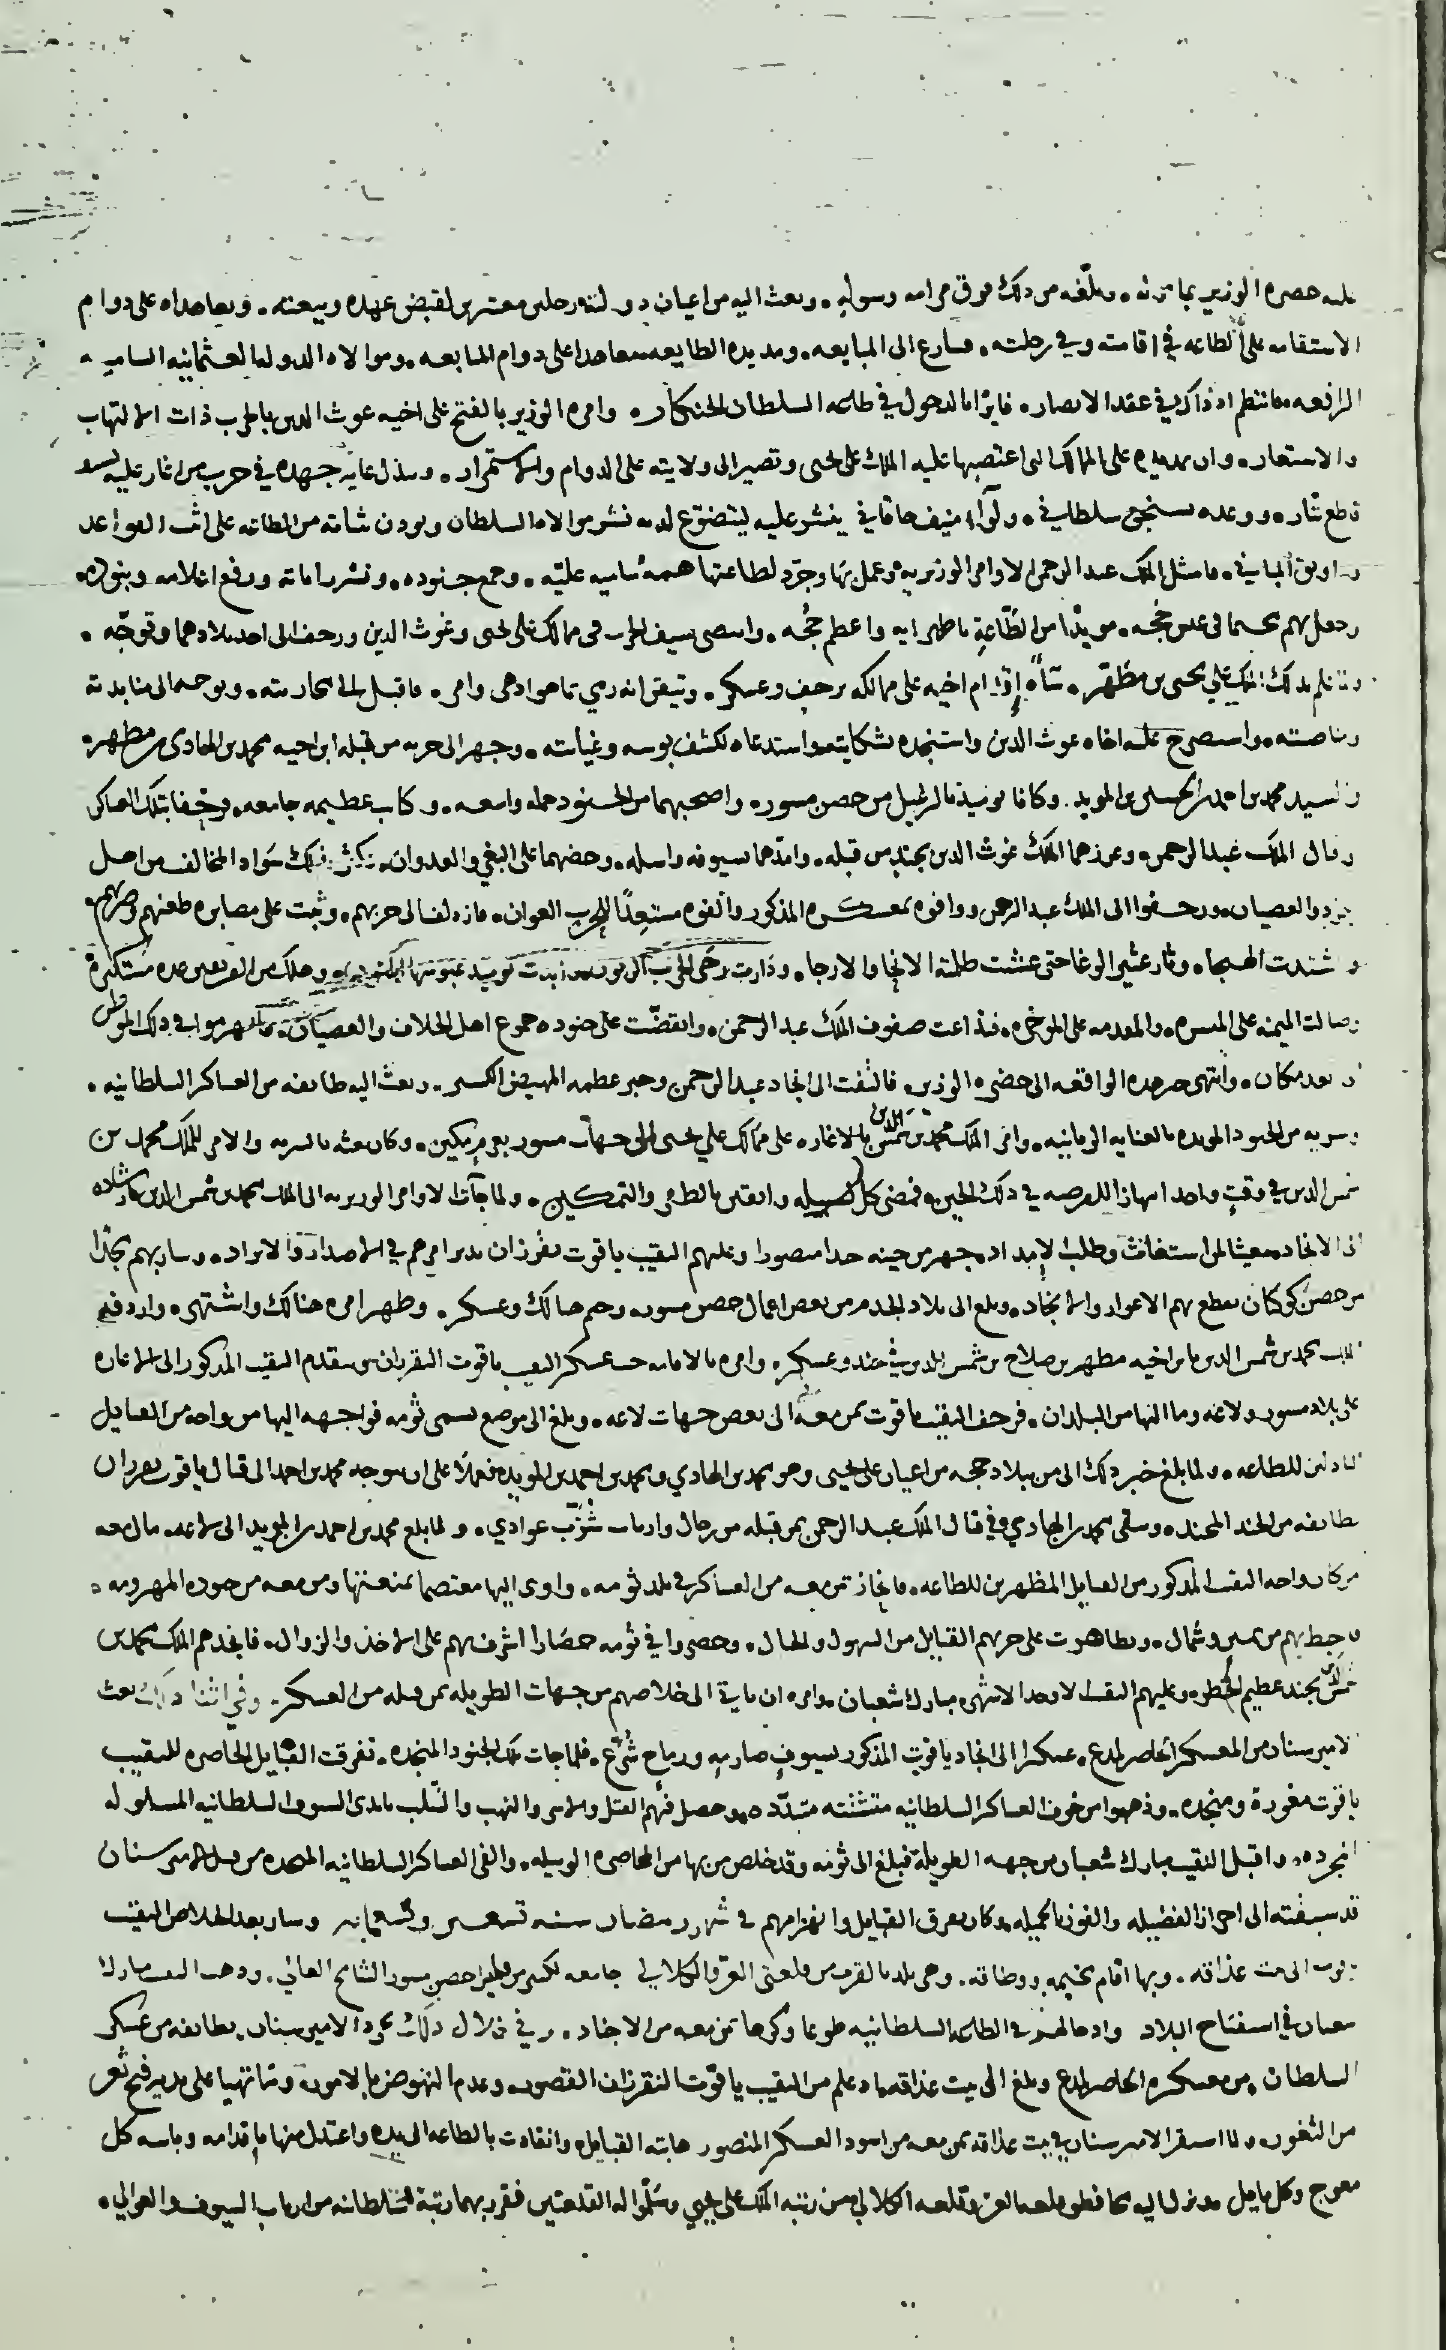 حضره الوزير بما ... وبلّغه من ذلك فوق مرامه وسوله . وبعث اليه من اعيان دولته رجلين معتبرين لقبض عهده وبيعته . ويعاهداه على دوام
الاستقامه على الطاعه في اقامته وفي رحلته . فسارع الى المبايعه . ومد يده الطايعه معاهدا على دوام المتابعه . وموالاه الدوله العثمانيه الساميه
الرافعه . فانتظم اذ ذاك في عقد الانصار . فايزا بالدخول في طاعه السلطان الخنكار . وامره الوزير بالفتح على اخيه غوث الدين باب حرب ذات الالتهاب
والاستعار . وان يمد يده على الممالك التي اغتصبها عليه الملك علي يحيى وتصير الى ولايته على الدوام والاستمرار . وبذل غايه جهده في حرب من اغار عليه
ووعده بسنجق سلطاني . ولواء منيف خاقاني ينشر عليه ليتضوع لديه نشر موالاه السلطان ويوذن بثباته من الطاعه على اثبت القواعد
واوثق المباني . فامتثل الملك عبد الرحمن الاوامر الوزيريه وعمل بها وجرّد لطاعتها همه ساميه عليّه . وجمع جنوده . ونشر راياته ورفع اعلامه وبنوده .
مويدا من الطّاعه باظهر ايه واعظم حجّه . وانتضى سيف الحرب في ممالك علي يحيى وغوث الدين وزحف الى احد بلادهما وتوجّه .
علم بذلك الملك علي يحيى بن مطهّر . ساه اقدام اخيه على ممالكه بزحف وعسكر . وتيقن انه رمي بما هو ادهى وامر . فاقبل الى محاربته . وتوجه الى منابذته
ومناصبته . واستصرخ عليه اخاه غوث الدين واستنجده بشكايته واستدعاه لكشف بوسه وغياثته . وجهز الى حربه من قبله ابن اخيه محمد بن الهادي بن مطهر
والسيد محمد بن احمد بن الحسين بن المويد . وكانا يوميذ بالرغيل من حصن مسور . واصحبهما من الجنود جمله واسعه . وكتايب عظيمه جامعه . وزحفا بتلك العساكر
وقتال الملك عبد الرحمن وعززهما الملك غوث الدين بجند من قبله . وامدّهما بسيوفه واسله . وحضهما على البغي والعدوان . بذلك سواد المخالف من اهل
والعصيان . وزحفوا الى الملك عبد الرحمن ووافوه بمعسكره المذكور والفوه مستعدًا للحرب العوان . فازدلف الى حربهم . وثبت على مصابره طعنهم وضربهم .
واشتدت الهيجا . وثار عثير الوغا حتى غشت ظلمته الانحا والارجا . ودارت رحى الحرب ... وهلك من الفريقين عده مستكثرة
وصالت الميمنه على الميسره . والمقدمه على الموخره . فتداعت صفوف الملك عبد الرحمن . وانقضّت على جنوده جموع اهل الخلاف والعصيان . فانهزموا في ذلك الموطن
وانتهى خبر هذه الواقعه الى حضره الوزير . فالتفت الى انجاد عبد الرحمن وجبر عظمه المهيض الكسير . وبعث اليه طايفه من العساكر السلطانيه .
وسريه من الجنود المويده بالعنايه الربانيه . وامر الملك محمد بن شمس الدين بالاغاره على ممالك علي يحيى الى جهات مسور بعزم مكين . وكان بعثه بالسريه والامر للملك محمد بن
شمس الدين في وقتٍ واحد انتهازا للفرصه في ذلك الحين . فمضى كل وايقن بالظفر والتمكين . ولما جآت الاوامر الوزيريه الى الملك محمد بن شمس الدين
الانجاد مغيثا لمن استغاث وطلب الامداد . جهز من حينه جندا منصورا وعليهم النقيب ياقوت نقرزان مدبرا مرهم في الاصدار والايراد . وسار بهم مجدّا
من حصن كوكبان يقطع بهم الاغوار والانجاد . وبلغ الى بلاد الجدم من بعض اعمال حصن مسور . وخيم هنالك وعسكر . وظهر امره هنالك واشتهر . واردفه
الملك محمد بن شمس الدين بابن اخيه مطهر بن صلاح بن شمس الدين في جند وعسكر . وامره بالاقامه عسكر النقيب ياقوت النقرزان وتقدم النقيب المذكور الى الاغاره
على بلاد مسور ولاعه وما اليها من البلدان . فزحف النقيب ياقوت بمن معه الى بعض جهات لاعه . وبلغ الى موضع يسمى ثومه فواجهه اليها من واجه من القبايل
للطاعه . ولما بلغ خبر ذلك الى من ببلاد حجه من اعيان علي يحيى وهو محمد بن الهادي ومحمد بن احمد بن المويد عملا على ان يتوجه محمد بن احمد الى قتال ياقوت نقرزان
بطايفه من الجند المجنده . وبقي محمد بن الهادي في قتال الملك عبد الرحمن بمن قبله من رجال وارباب شزّب عوادي . ولما بلغ محمد بن احمد بن المويد الى لاعه مال معه
من كان واجه النقيب المذكور من القبايل المظهرين للطاعه . فانحاز بمن معه من العساكر في بلد ثومه . واوى اليها معتصما بمنعتها ومن معه من جوره المهزومه
من يمين وشمال . وتظاهرت على حربهم القبايل من السهول والجبال . وحصروا في ثومه حصارا اشرف بهم على الاخذ والزوال . فانجدهم الملك محمد بن
شمس الدين بجند عظيم الخطر . وعليهم النقيب الاوحد الاشهر مبارك شعبان . وامره ان ياتي الى خلاصهم من جهات الطويله بمن قبله من العسكر . وفي اثنا ذلك بعث
الامير سنان من المعسكر المحاصر لمدع . عسكرا الى انجاد ياقوت المذكور بسيوفٍ صارمه ورماحٍ شرّع . فلما جات تلك الجنود المنجده . تفرقت القبايل المحاصره للنقيب
ياقوت مغورة ومنجده . وذهبوا من خوف العساكر السلطانيه متشتته متبدّده . وحصل فيهم القتل والاسر والنهب والسّلب بايدى السيوف السلطانيه المسلوله
المجرده . واقبل النقيب مبارك شعبان من جهه الطويله فبلغ الى ثومه وقد خلص من بها من المحاصره الوبيله . والفى العساكر السلطانيه المنجده من قبل الامير سنان
قد سبقته الى احراز الفضيله والفوز بالجميله . وكان تفرق القبايل وانهزامهم في شهر رمضان سنه تسعين وتسعمايه وسار بعد الخلاص النقيب
ياقوت الى بيت عذاقه . وبها اقام مخيمه ووطاقه . وهي بلد بالقرب من قلعتي العزّ والكلالي جامعه حصن مسور الشامخ العالي . وذهب النقيب مبارك
شعبان في استفتاح البلاد وادخالهم في الطاعه السلطانيه طوعا وكرها بمن معه من الاجناد . وفي خلال ذلك الامير سنان بطايفه من عسكر
السلطان من معسكره المحاصر لمدع وبلغ الى بيت عذاقه علم من النقيب ياقوت النقرزان القصور . وعدم النهوض بالامور . وما تهيا على يديه فتح ثغر
من الثغور . ولما استقر الامير سنان في بيت عذاقه بمن معه من اسود العسكر المنصور هابته القبايل . وانقادت بالطاعه الى يده واعتدل منها باقدامه وباسه كل
معوج وكل مايل . ونزل اليه محافظو قلعه العز وقلعه الكلالي من رتبه الملك علي يحيى وسلّموا له القلعتين فقرر بهما رتبة سلطانيه من ارباب السيوف والعوالي .